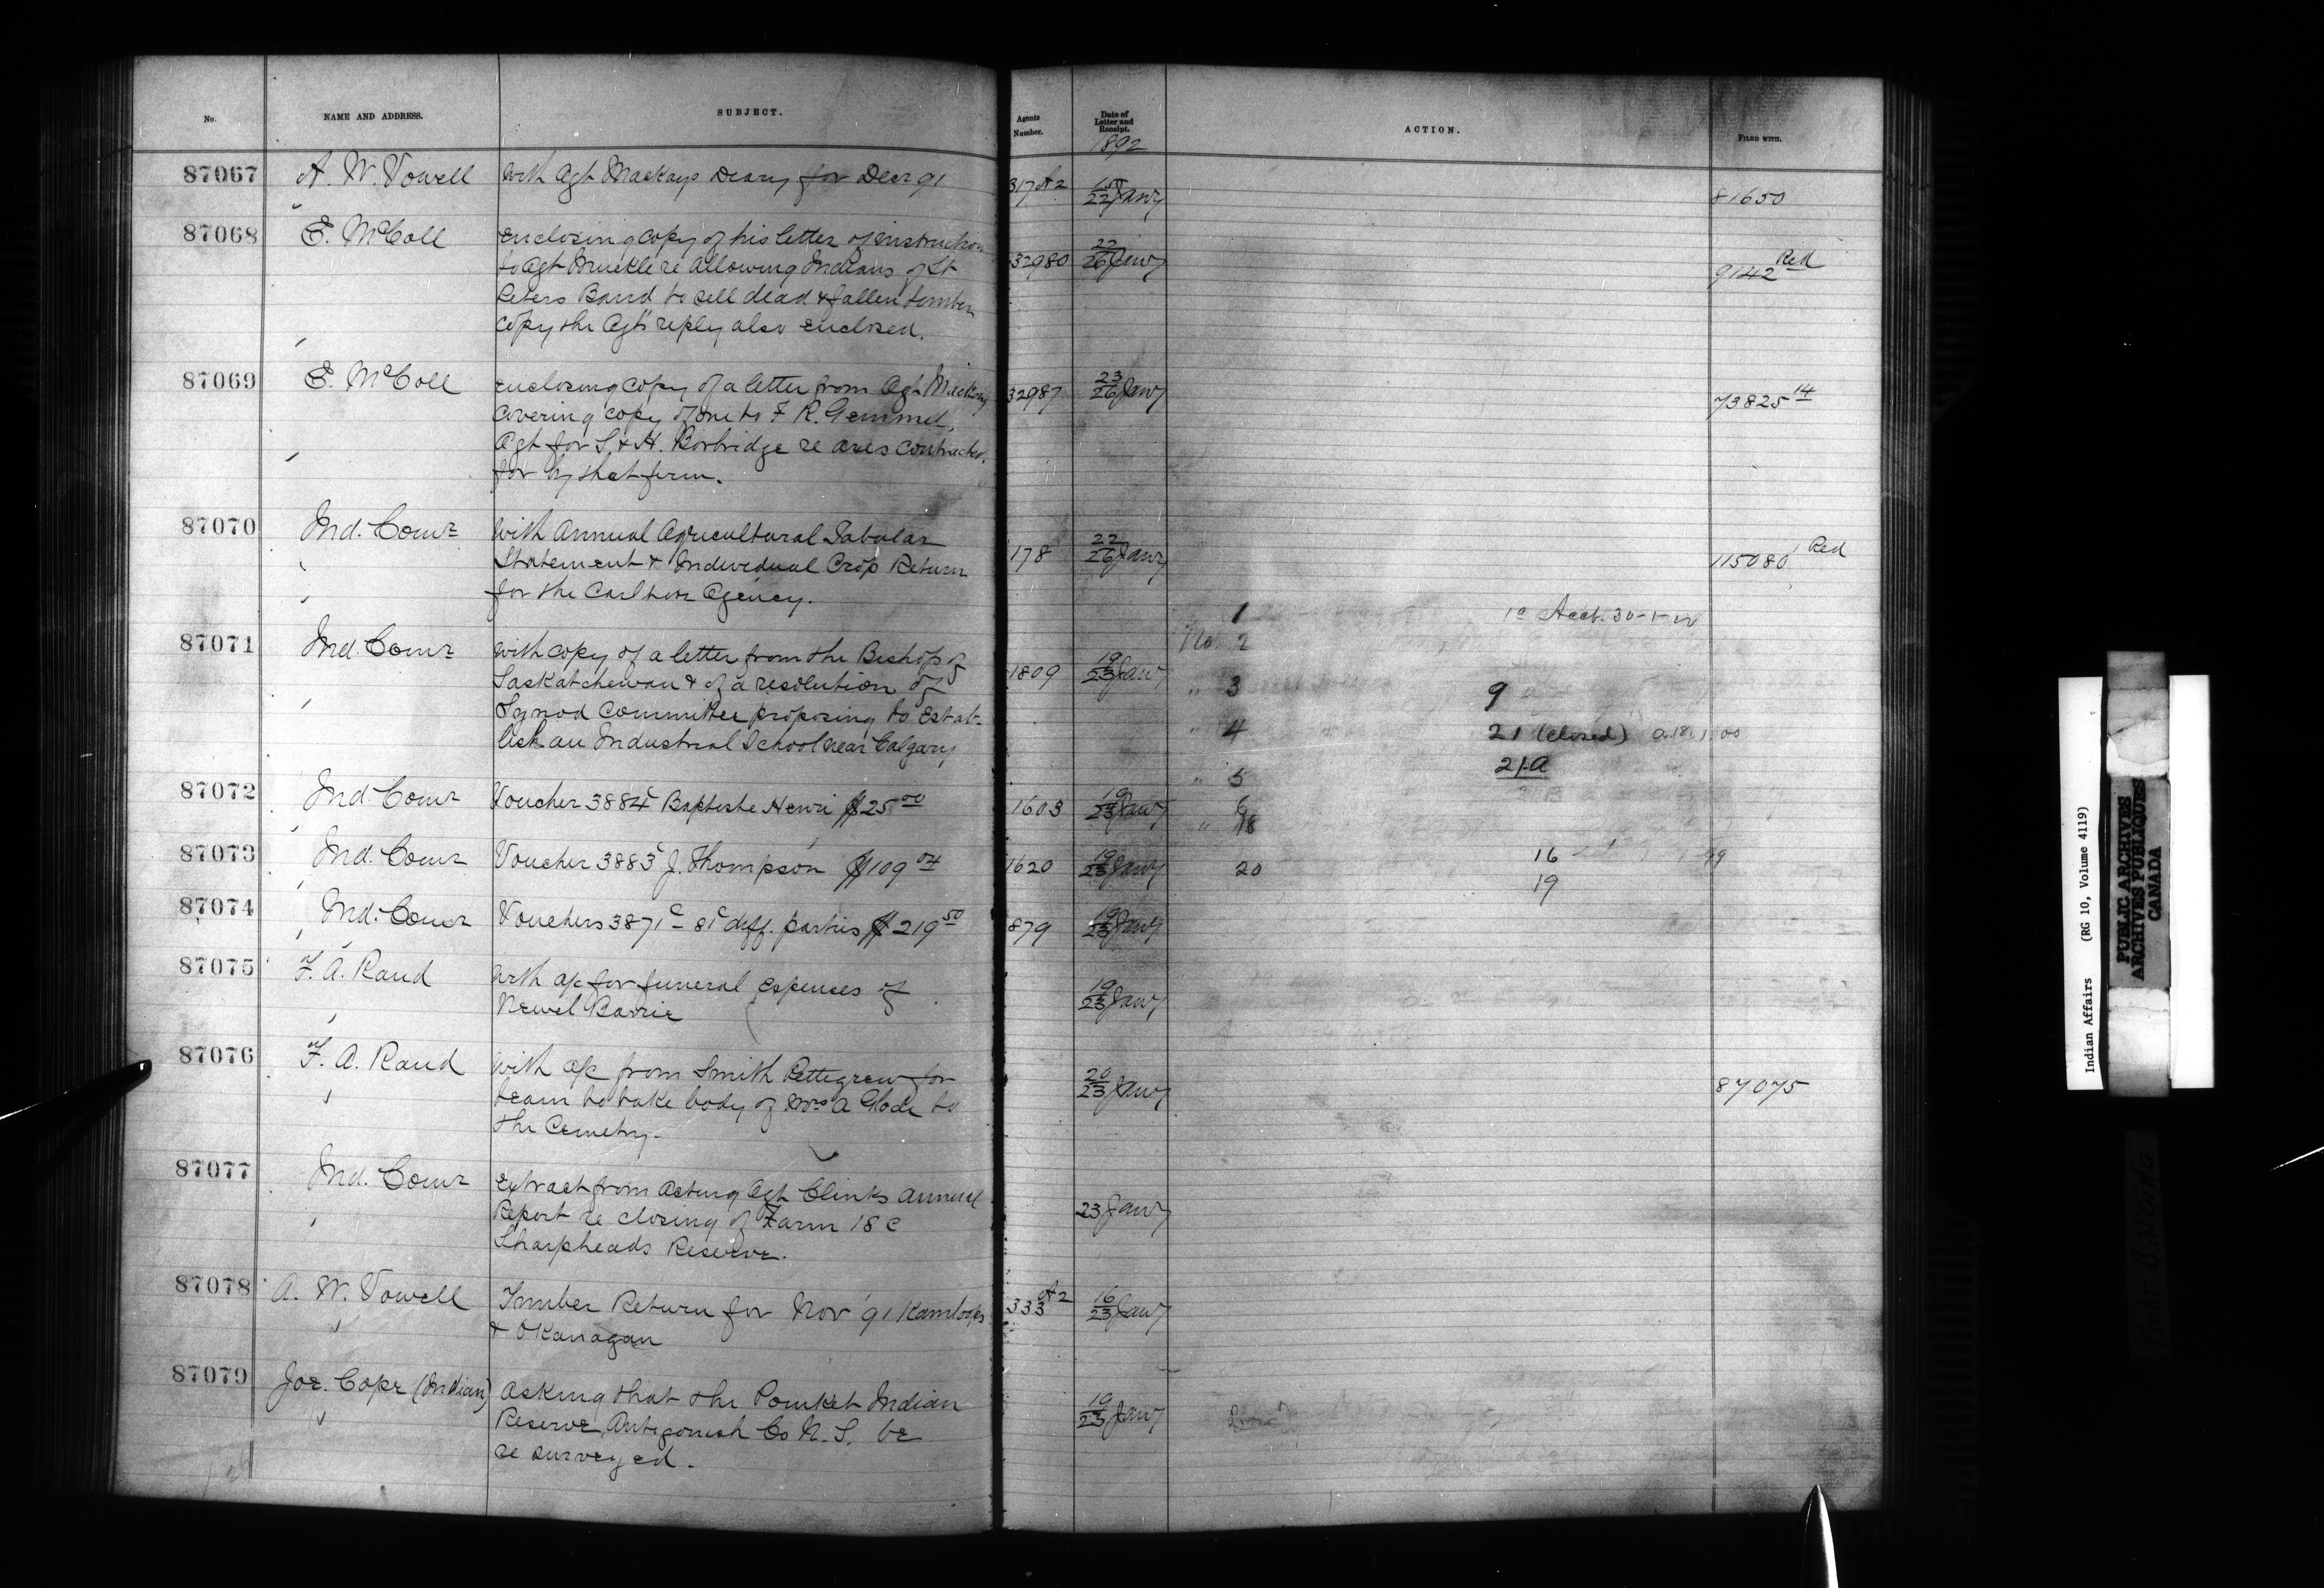 No. NAME AND ADDRESS. SUBJECT. Agents Number. Date of Letter and Receipt. ACTION. FILED WITH.
1892
87067 A. W. Vowell With Agt Mackays Diary for Decr 91 317 A2 15/22 Jany 81650
87068 E. McColl Enclosing copy of his letter of instruction 32980 22/26 Jany 9142 Red
to Agt Muckle re allowing Indians of St
Peters Band to sell dead & fallen timber
Copy the Agts reply also enclosed.
87069 E. McColl Enclosing copy of a letter from Agt Mackay 32987 23/26 Jany 73825 14
Covering copy of one to F. R. Gemmel,
Agt for S. & H. Borbridge re axes contracted
for by that firm.
87070 Ind. Comr With Annual Agricultural Tabular 178 22/26 Jany 115080 1 Red
Statement & Individual Crop Return
for the Carlton Agency.
1 Acct. 30-1-
No. 2
87071 Ind. Comr With copy of a letter from the Bishop of 1809 19/23 Jany
Saskatchewan & of a resolution of " 3 9
Synod Committee proposing to Estab- " 4 21 (closed)
lish an Industrial School near Calgary
" 5 21-A
87072 Ind. Comr Voucher 3884c Baptiste Henri $25 00 1603 19/23 Jany 6
" 18
87073 Ind. Comr Voucher 3883c J. Thompson $109 04 1620 19/23 Jany 20 16
19
87074 Ind. Comr Vouchers 3871c - 81c diff. parties $219 50 879 19/23 Jany
87075 F. A. Rand With a/c for funeral expenses of 19/23 Jany
Newel Barrie
87076 F. A. Rand With a/c from Smith Pettigrew for 20/23 Jany 87075
team to take body of Mrs A Glode to
the Cemetry.
87077 Ind. Comr Extract from Acting Agt Clinks annual 23 Jany
Report re closing of Farm 18 c
Sharpheads Reserve.
87078 A. W. Vowell Timber Return for Nov '91 Kamloops 333 A2 16/23 Jany
& OKanagan
87079 Joe. Cope (Indian) Asking that the Pomket Indian 19/23 Jany
Reserve, Antigonish Co N. S. be
re surveyed.
Indian Affairs (RG 10, Volume 4119)
PUBLIC ARCHIVES
ARCHIVES PUBLIQUES
CANADA